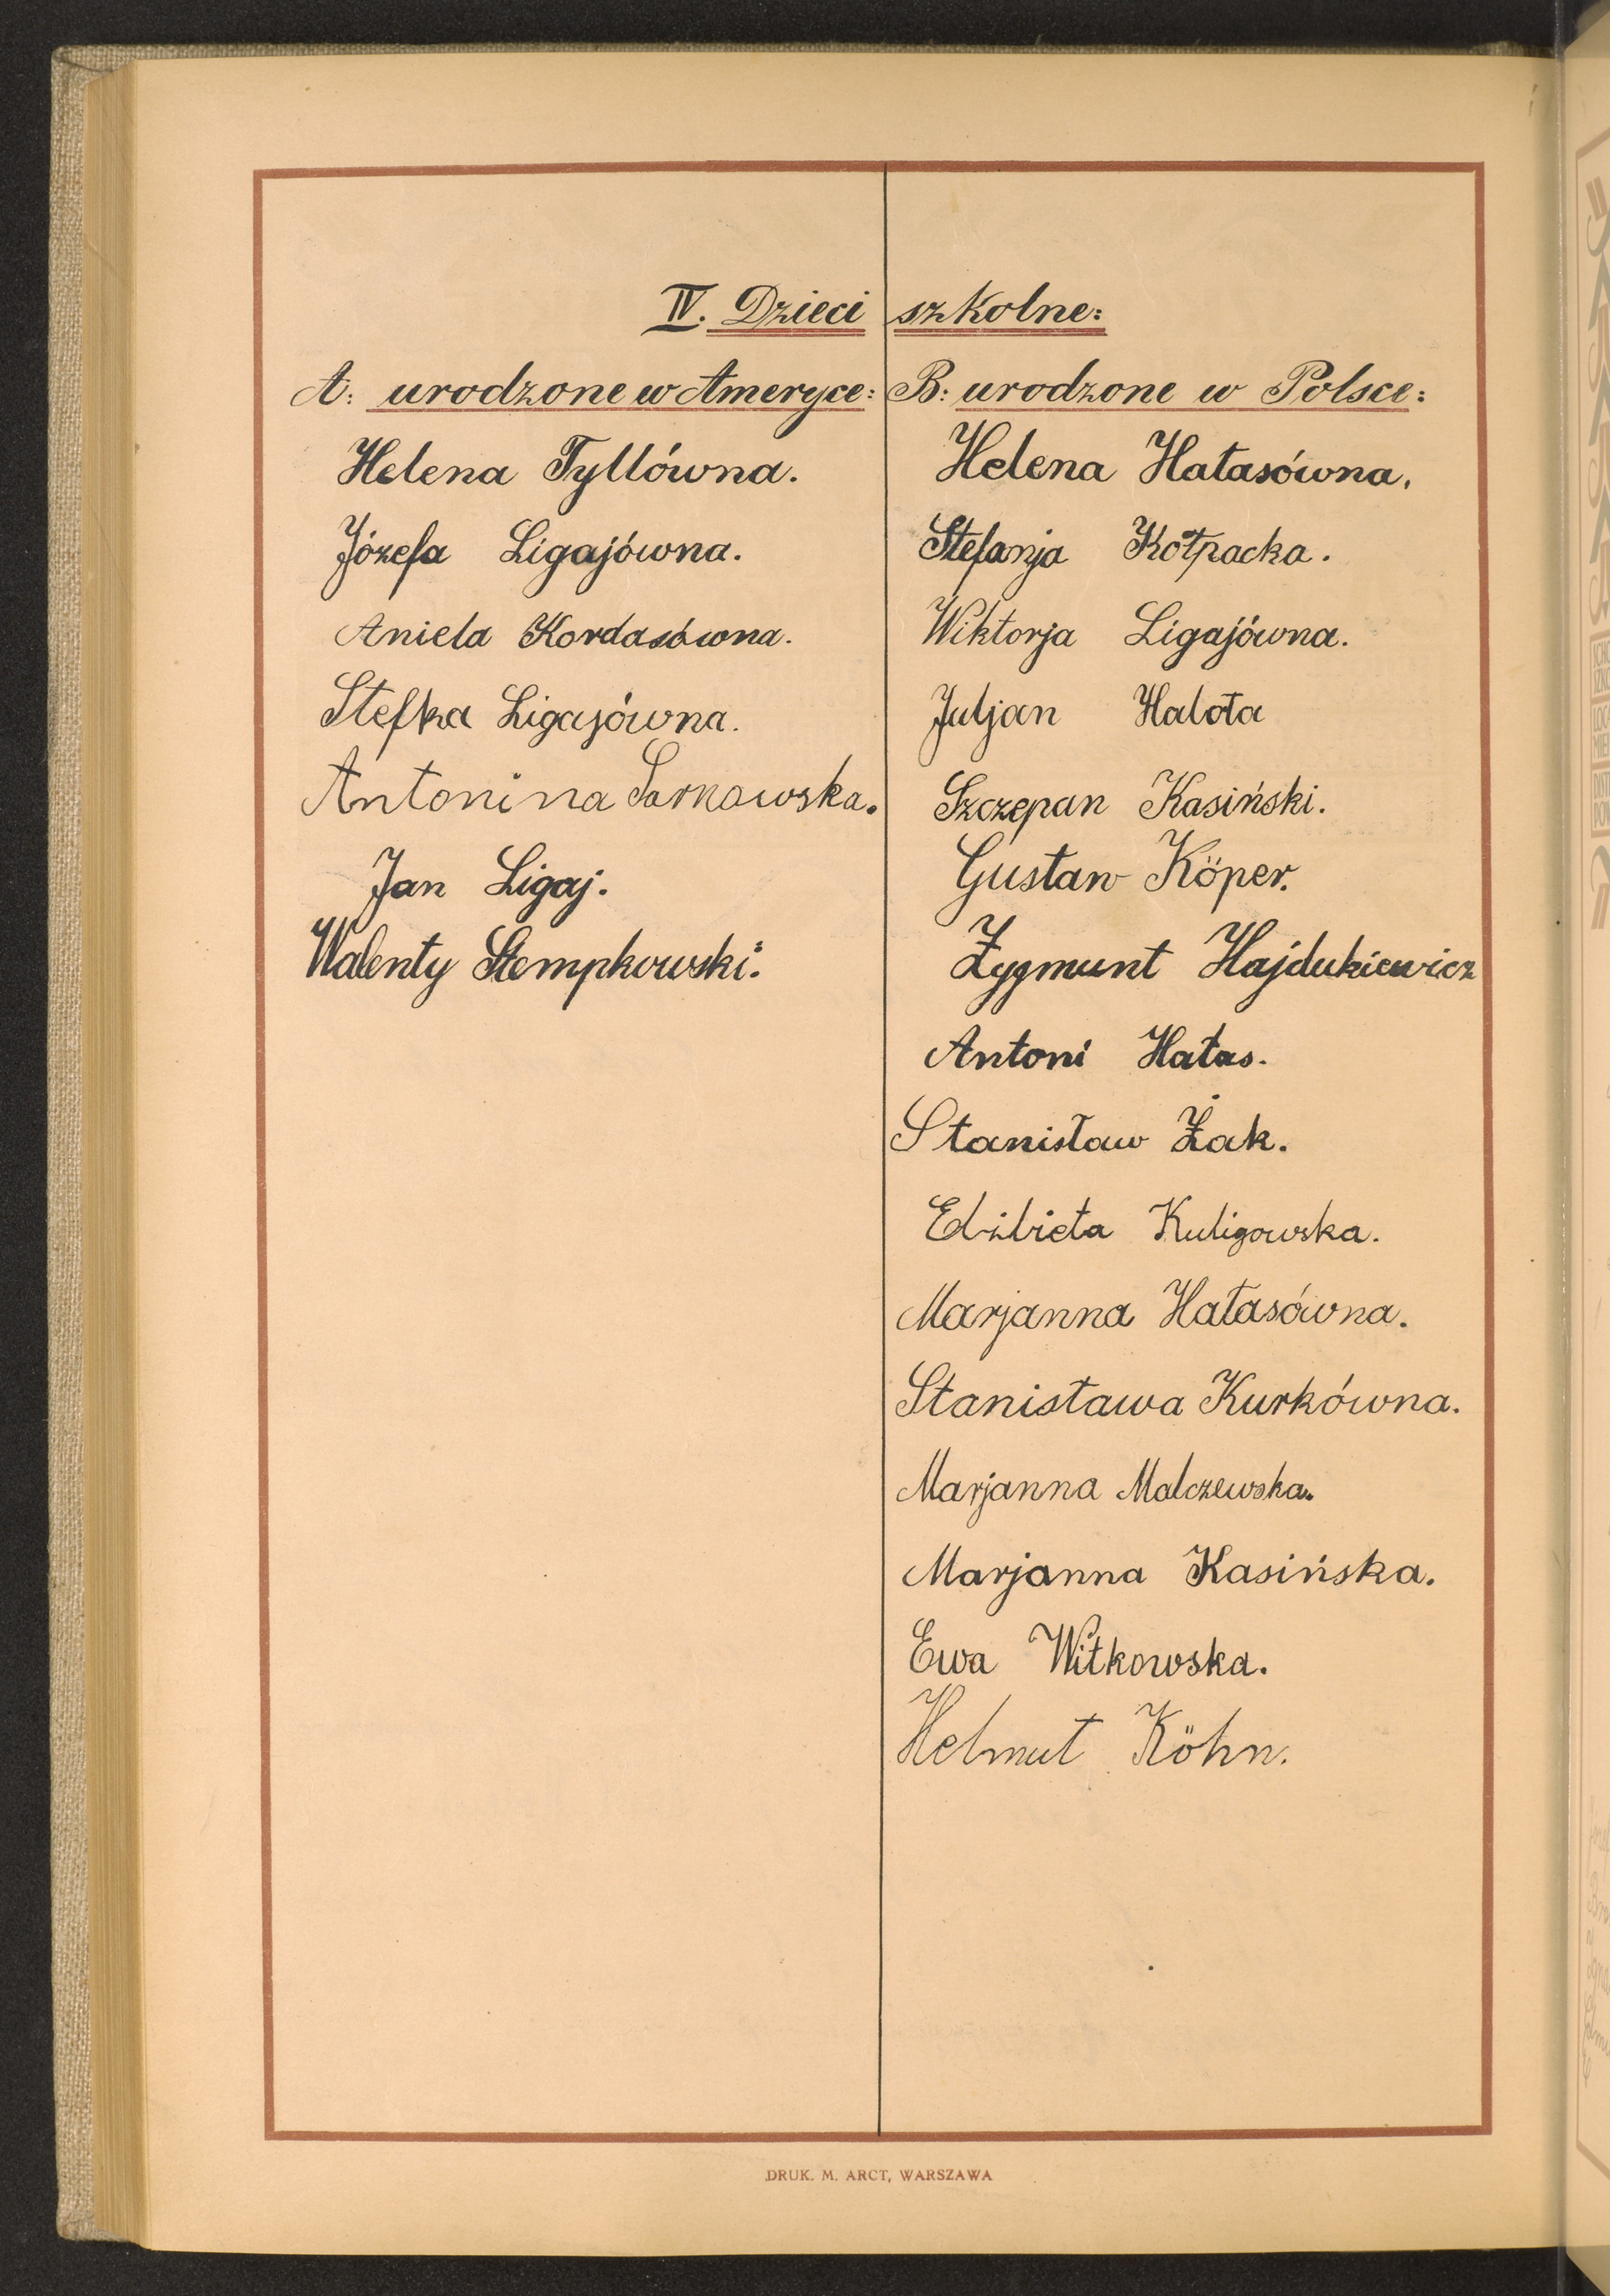 IV. Dzieci szkolne:
A: urodzone w Ameryce:
Helena Tyllówna.
Józefa Ligajówna.
Aniela Kordasówna.
Stefka Ligajówna.
Antonina Sarnowska.
Jan Ligaj.
Walenty Stempkowski.
B: urodzone w Polsce:
Helena Hałasówna.
Stefanja Kołpacka.
Wiktorja Ligajówna.
Juljan Halota
Szczepan Kasiński.
Gustaw Köper.
Zygmunt Hajdukiewicz
Antoni Hałas.
Stanisław Żak.
Elżbieta Kuligowska.
Marjanna Hałasówna.
Stanisława Kurkówna.
Marjanna Malczewska.
Marjanna Kasińska.
Ewa Witkowska.
Helmut Köhn.
DRUK. M. ARCT, WARSZAWA